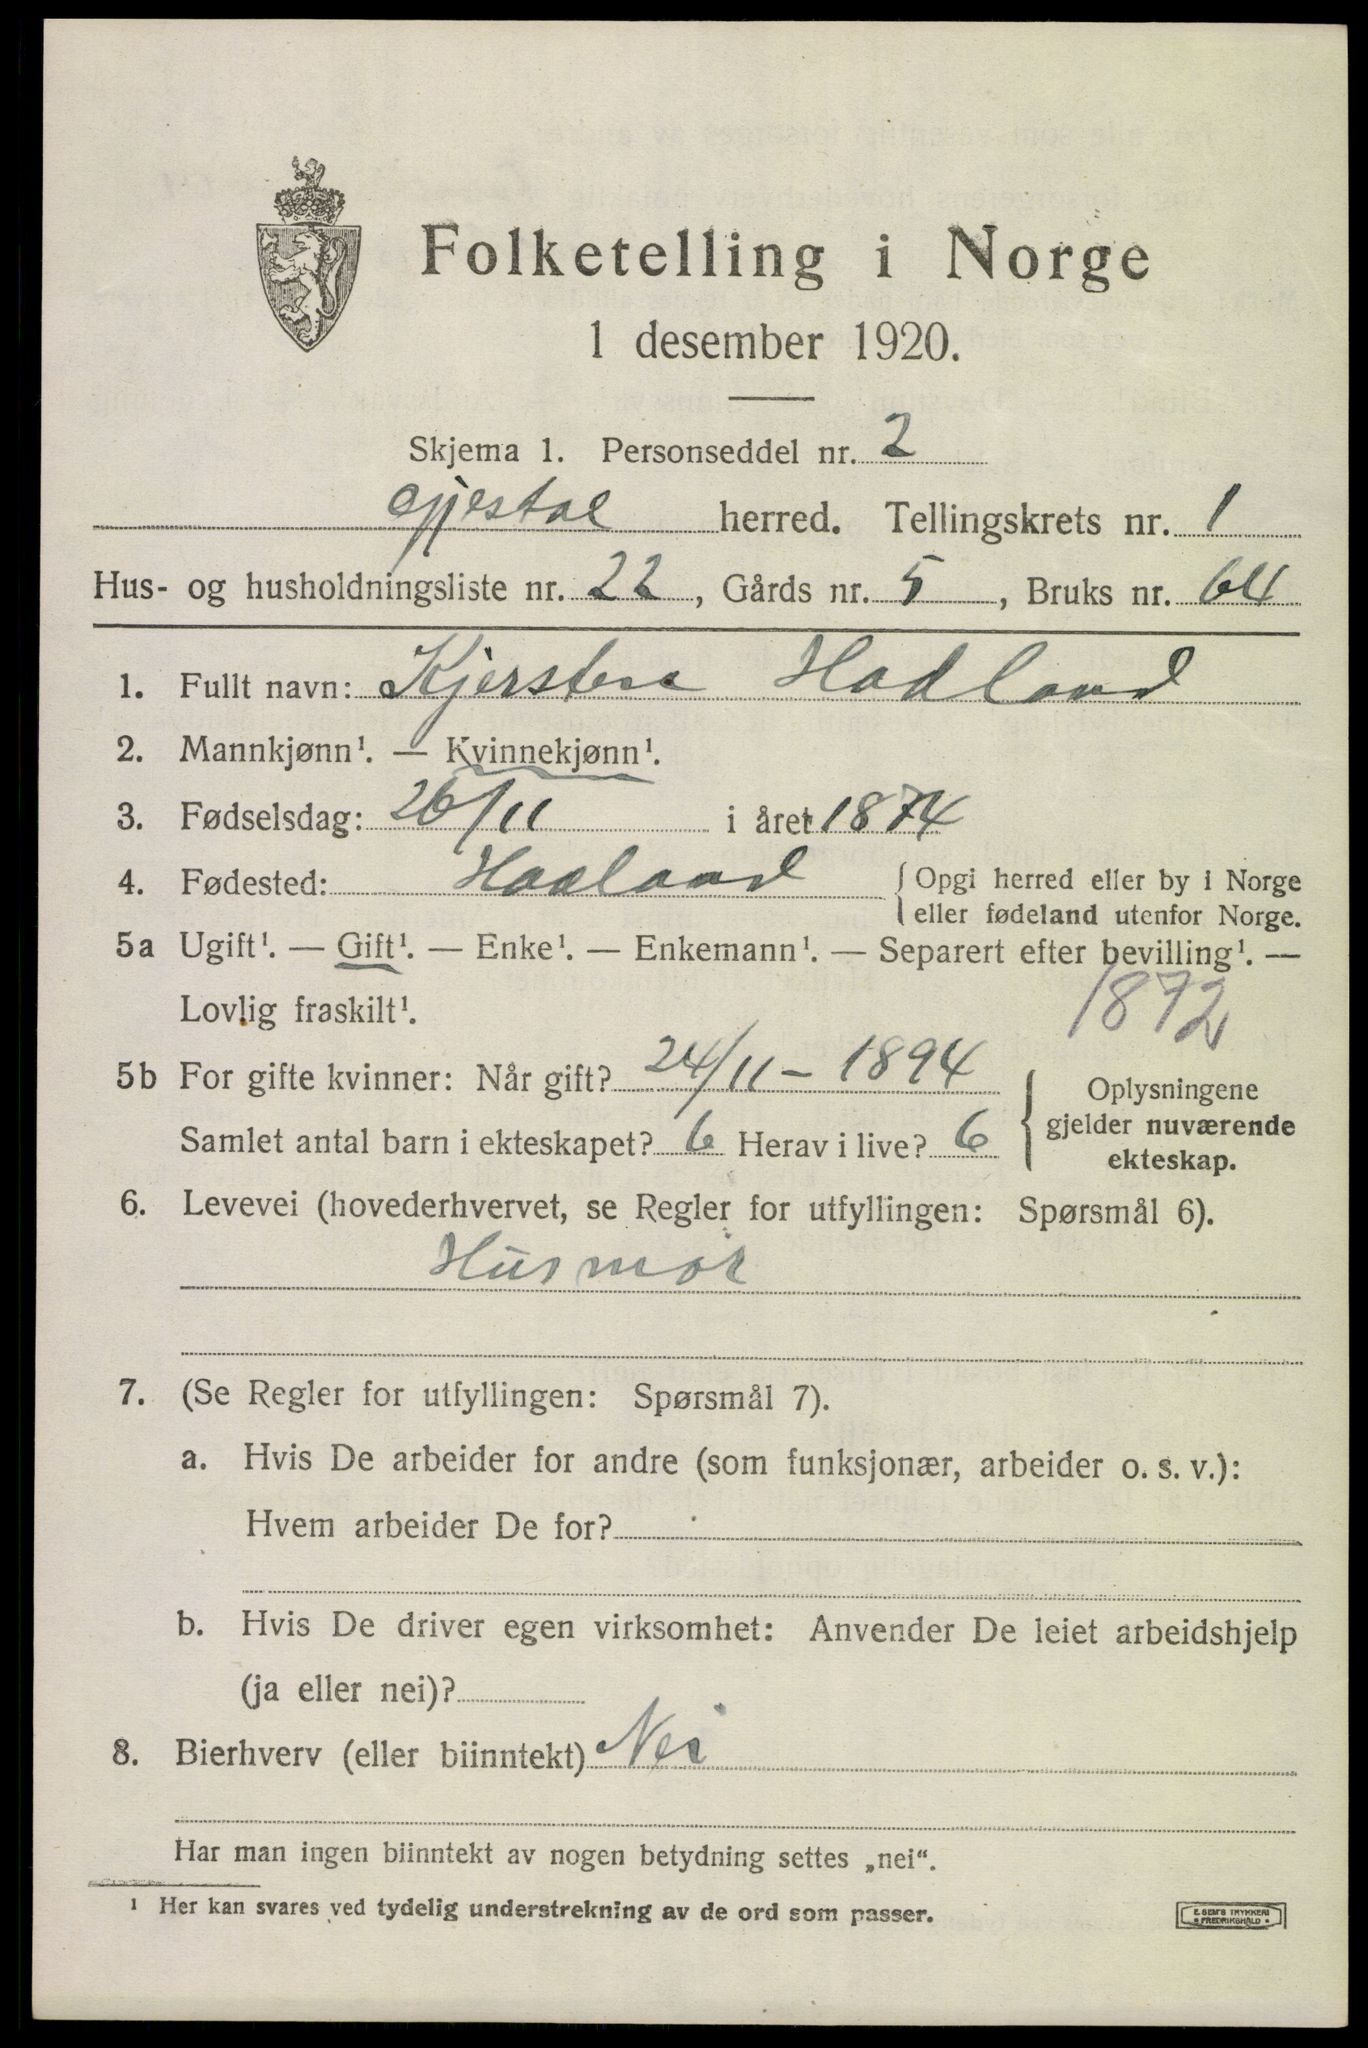 Folketelling i Norge
1 desember 1920.
Skjema 1. Personseddel nr. 2
Gjestal herred. Tellingskrets nr. 1
Hus- og husholdningsliste nr. 22, Gårds nr. 5, Bruks nr. 64
1. Fullt navn: Kjersten Hadland
2. Mannkjønn¹. — Kvinnekjønn¹.
3. Fødselsdag: 26/11 i året 1874
4. Fødested: Hadland {Opgi herred eller by i Norge
eller fødeland utenfor Norge.
5a Ugift¹. — Gift¹. — Enke¹. — Enkemann¹. — Separert efter bevilling¹. —
Lovlig fraskilt¹. 1872
5b For gifte kvinner: Når gift? 24/11 - 1894
Samlet antal barn i ekteskapet? 6 Herav i live? 6
{Oplysningene
gjelder nuværende
ekteskap.
6. Levevei (hovederhvervet, se Regler for utfyllingen: Spørsmål 6).
Husmor
7. (Se Regler for utfyllingen: Spørsmål 7).
a. Hvis De arbeider for andre (som funksjonær, arbeider o. s. v.):
Hvem arbeider De for?
b. Hvis De driver egen virksomhet: Anvender De leiet arbeidshjelp
(ja eller nei)?
8. Bierhverv (eller biinntekt) Nei
Har man ingen biinntekt av nogen betydning settes „nei“.
¹ Her kan svares ved tydelig understrekning av de ord som passer.
E. SEM'S TRYKKERI
FREDRIKSHALD